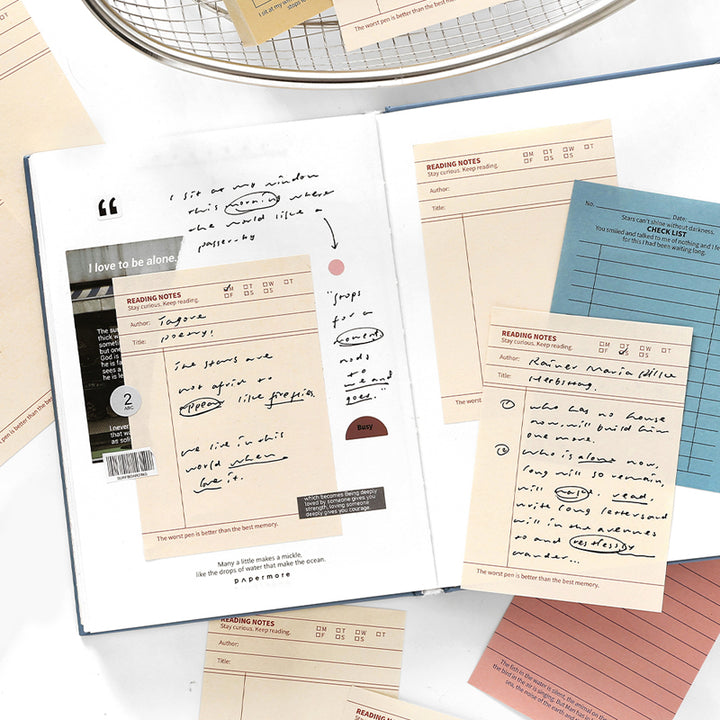 I sit at my win
stops fo
The worst pen is better than the best mem
“
I sit at my window
this morning where
the world like a
passer-by
"stops
for a
moment
nods
to
me and
goes."
Busy
I love to be alone.
The sun
thick w
but one
God is
he is fa
sees a
he is le
2
ABC
I never
that wa
as soli
READING NOTES
Stay curious. Keep reading.
M T W T
F S S
Author: Tagore
Title: poetry!
The stars are
not afraid to
appear like fireflies.
we live in this
world when
love it.
The worst pen is better than the best memory.
which becomes Being deeply
loved by someone gives you
strength, loving someone
deeply gives you courage.
Many a little makes a mickle,
like the drops of water that make the ocean.
papermore
READING NOTES
Stay curious. Keep reading.
M T W T
F S S
Author:
Title:
The w
No. Date:
Stars can't shine without darkness.
CHECK LIST
You smiled and talked to me of nothing and I fe
for this I had been waiting long.
READING NOTES
Stay curious. Keep reading.
M T W T
F S S
Author: Rainer Maria Rilke
Title: Herbsttag.
① who has no house
now, will build him
one more.
② who is alone now,
long will so remain,
will wake, read,
write long letters and
will in the avenues
to and restlessly
wander...
The worst pen is better than the best memory.
t pen is better than the best
READING NOTES
Stay curious. Keep reading.
M T W T
F S S
Author:
Title:
READING NOTES
The fish in the water is silent, the animal on the
the bird in the air is singing. But Man has in
sea, the noise of the earth